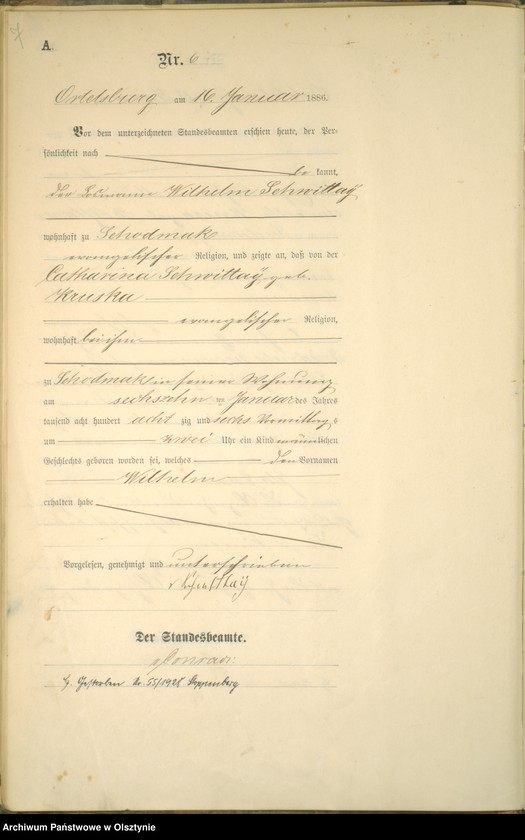 A.
Nr. 6
Ortelsburg am 16. Januar 1886.
Vor dem unterzeichneten Standesbeamten erschien heute, der Per-
sönlichkeit nach
be kannt,
der Losmann Wilhelm Schwittay
wohnhaft zu Schodmak
evangelischer Religion, und zeigte an, daß von der
Catharina Schwittay geb.
Kruska
evangelischer Religion,
wohnhaft bei ihm
zu Schodmak in seiner Wohnung
am sechszehn ten Januar des Jahrs
tausend acht hundert acht zig und sechs Vormittags
um zwei Uhr ein Kind männlichen
Geschlechts geboren worden sei, welches den Vornamen
Wilhelm
erhalten habe
Vorgelesen, genehmigt und unterschrieben
Der Standesbeamte.
Gestorben Nr. 55/1928
Archiwum Państwowe w Olsztynie